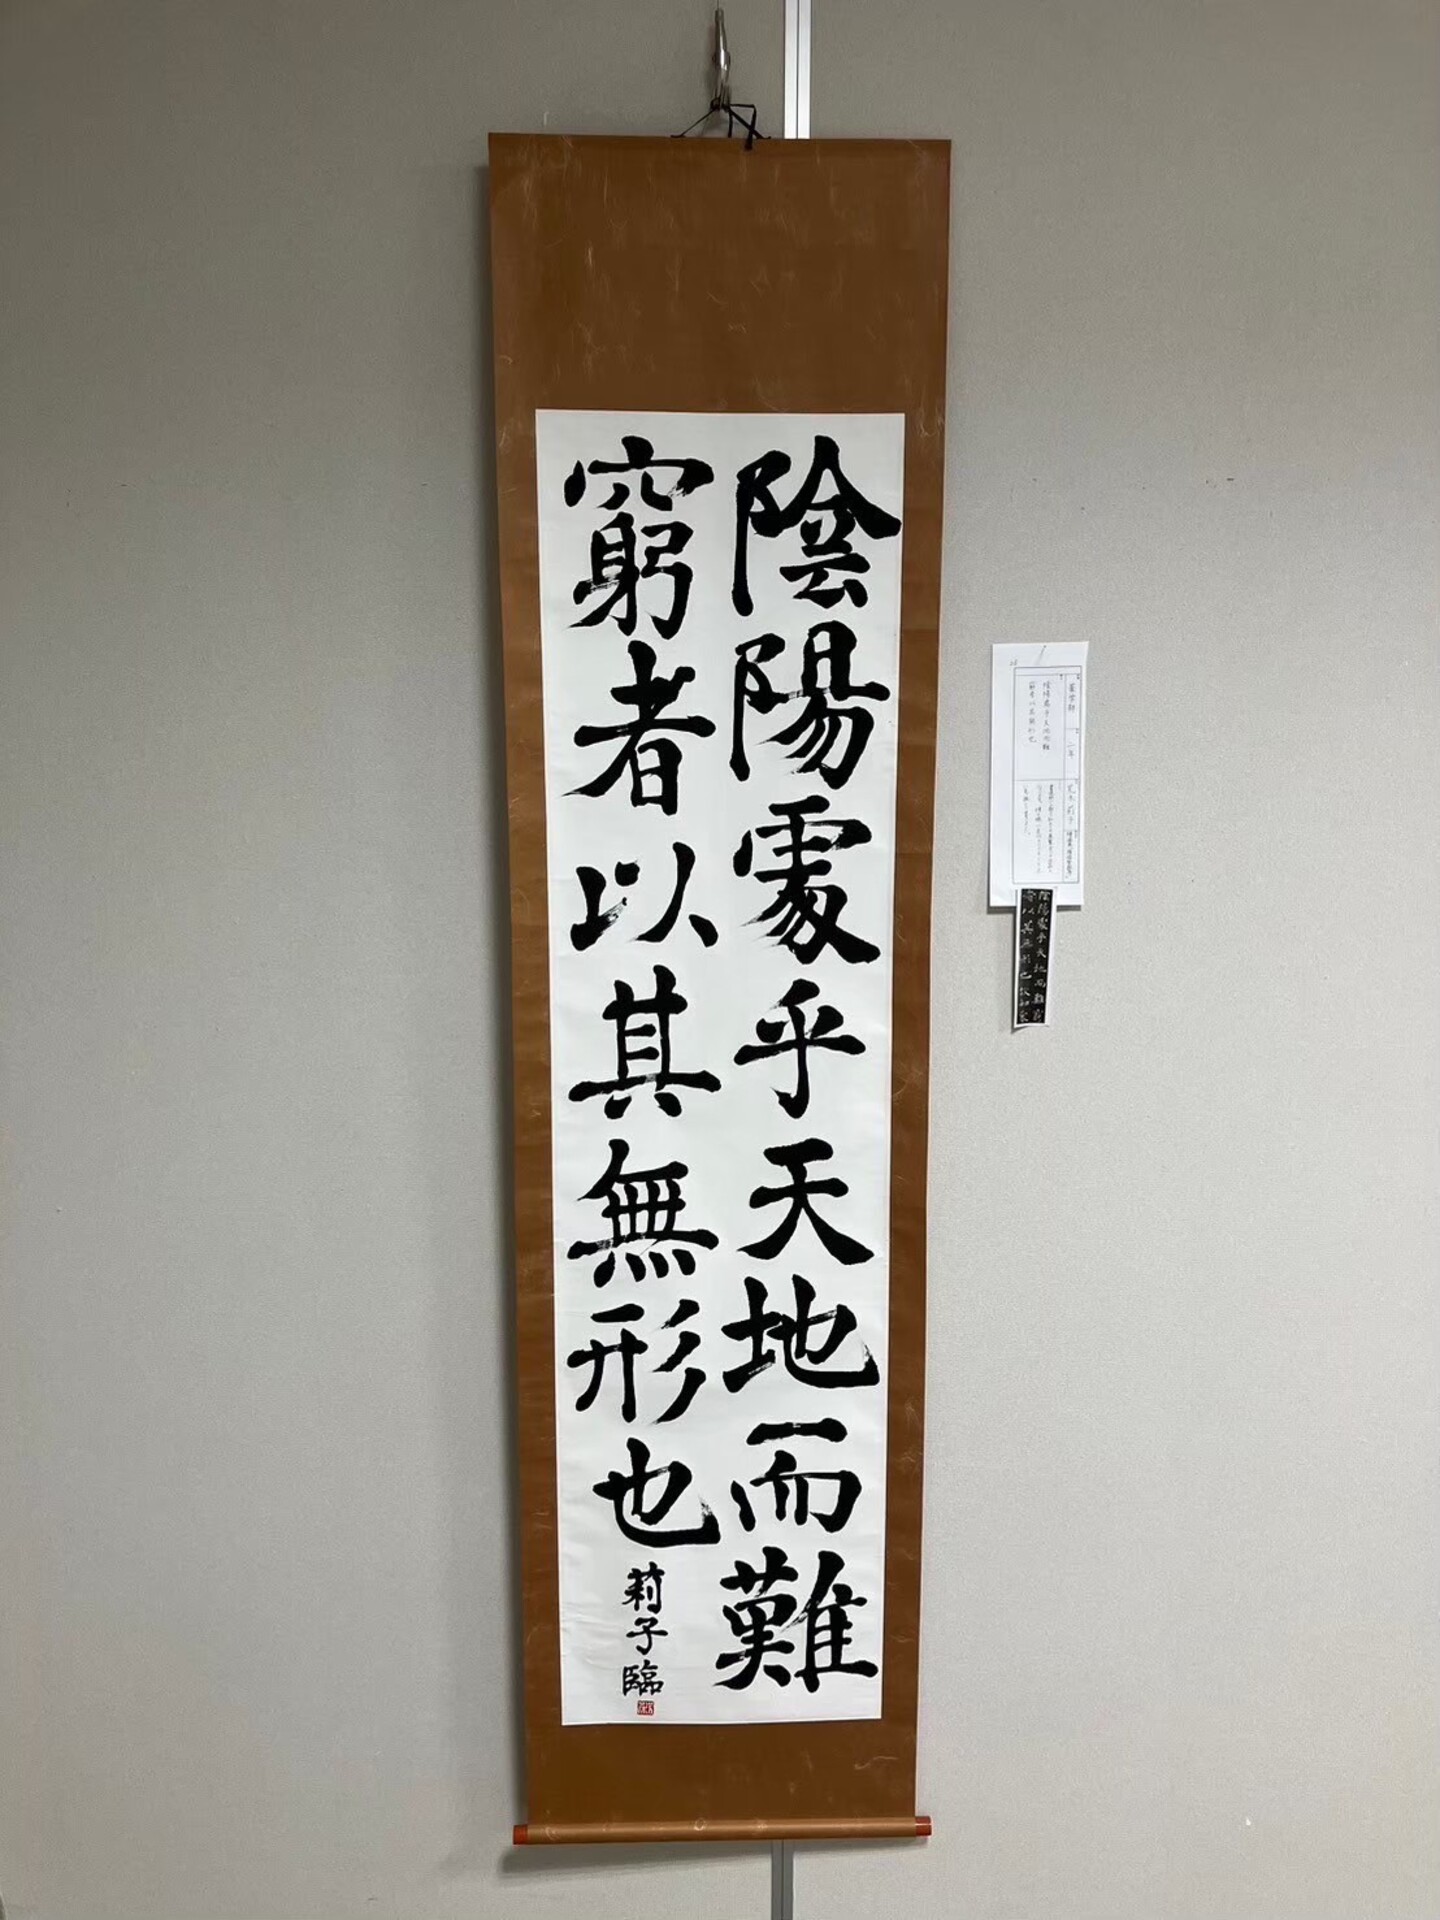 陰陽處乎天地而難
窮者以其無形也
莉子臨
薬学部 二年
陰陽處乎天地而難
窮者以其無形也
陰陽處乎天地而難窮
者以其無形也故知象